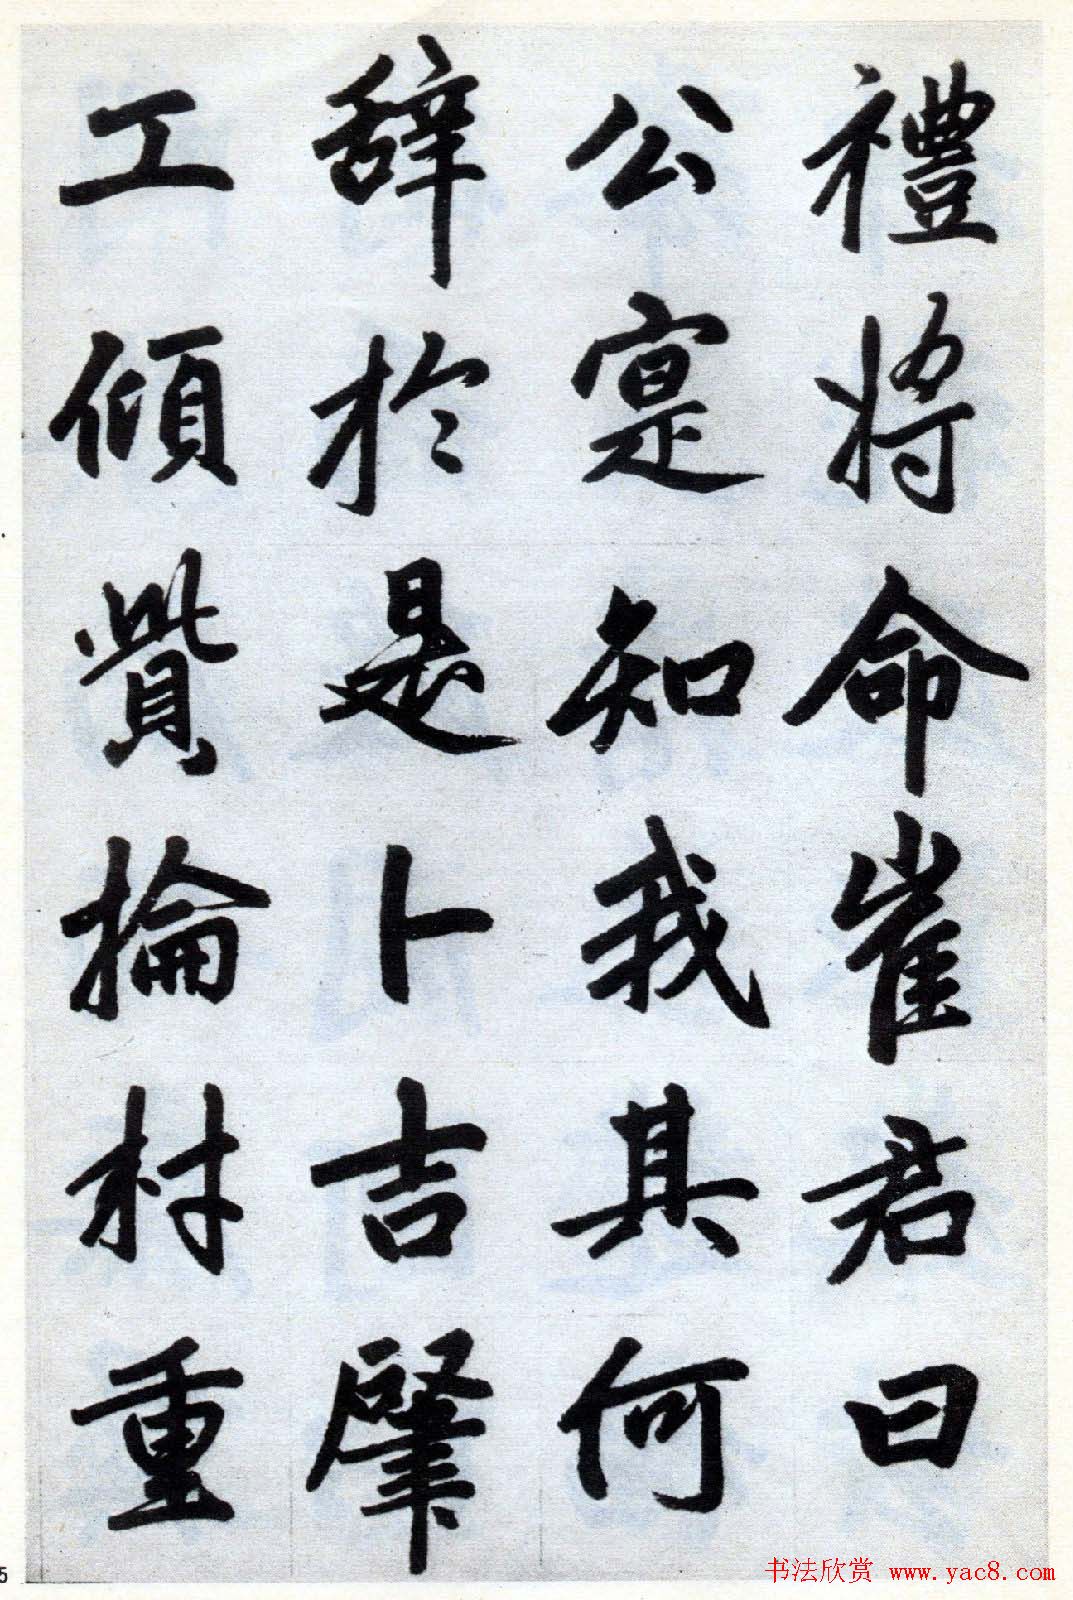 禮將命崔君曰
公寔知我其何
辭於是卜吉肈
工傾貲掄材重
5
书法欣赏 www.yac8.com